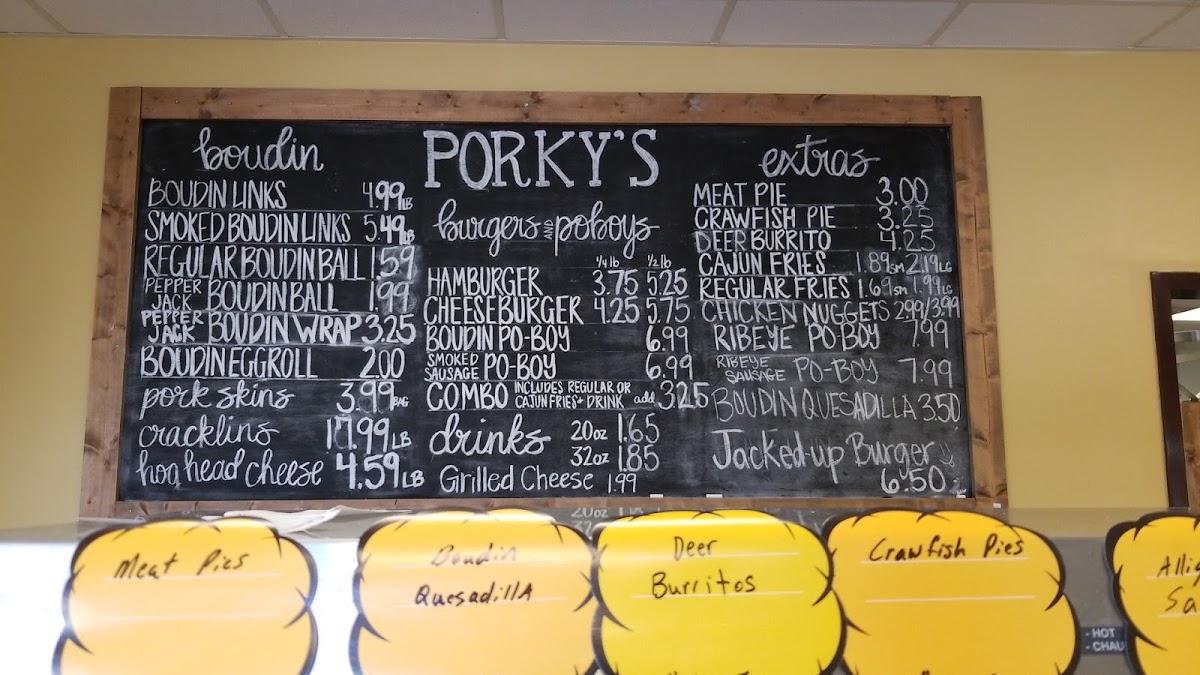 PORKY'S
boudin
BOUDIN LINKS 4.99 LB
SMOKED BOUDIN LINKS 5.49 LB
REGULAR BOUDIN BALL 1.59
PEPPER JACK BOUDIN BALL 1.99
PEPPER JACK BOUDIN WRAP 3.25
BOUDIN EGGROLL 2.00
pork skins 3.99 BAG
cracklins 17.99 LB
hog head cheese 4.59 LB
burgers AND poboys
1/4 lb 1/2 lb
HAMBURGER 3.75 5.25
CHEESEBURGER 4.25 5.75
BOUDIN PO-BOY 6.99
SMOKED SAUSAGE PO-BOY 6.99
COMBO INCLUDES REGULAR OR CAJUN FRIES + DRINK add 3.25
drinks 20oz 1.65
32oz 1.85
Grilled Cheese 1.99
extras
MEAT PIE 3.00
CRAWFISH PIE 3.25
DEER BURRITO 4.25
CAJUN FRIES 1.89 SM 2.19 LG
REGULAR FRIES 1.69 SM 1.99 LG
CHICKEN NUGGETS 2.99/3.99
RIBEYE PO-BOY 7.99
RIBEYE SAUSAGE PO-BOY 7.99
BOUDIN QUESADILLA 3.50
Jacked-up Burger
6.50
20oz
32
Meat Pies
Boudin
QuesadillA
Deer
Burritos
Crawfish Pies
Allig
Sa
- HOT
- CHAU